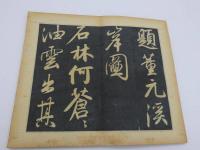 題董元溪
岸圖
石林何蒼蒼
油雲出其